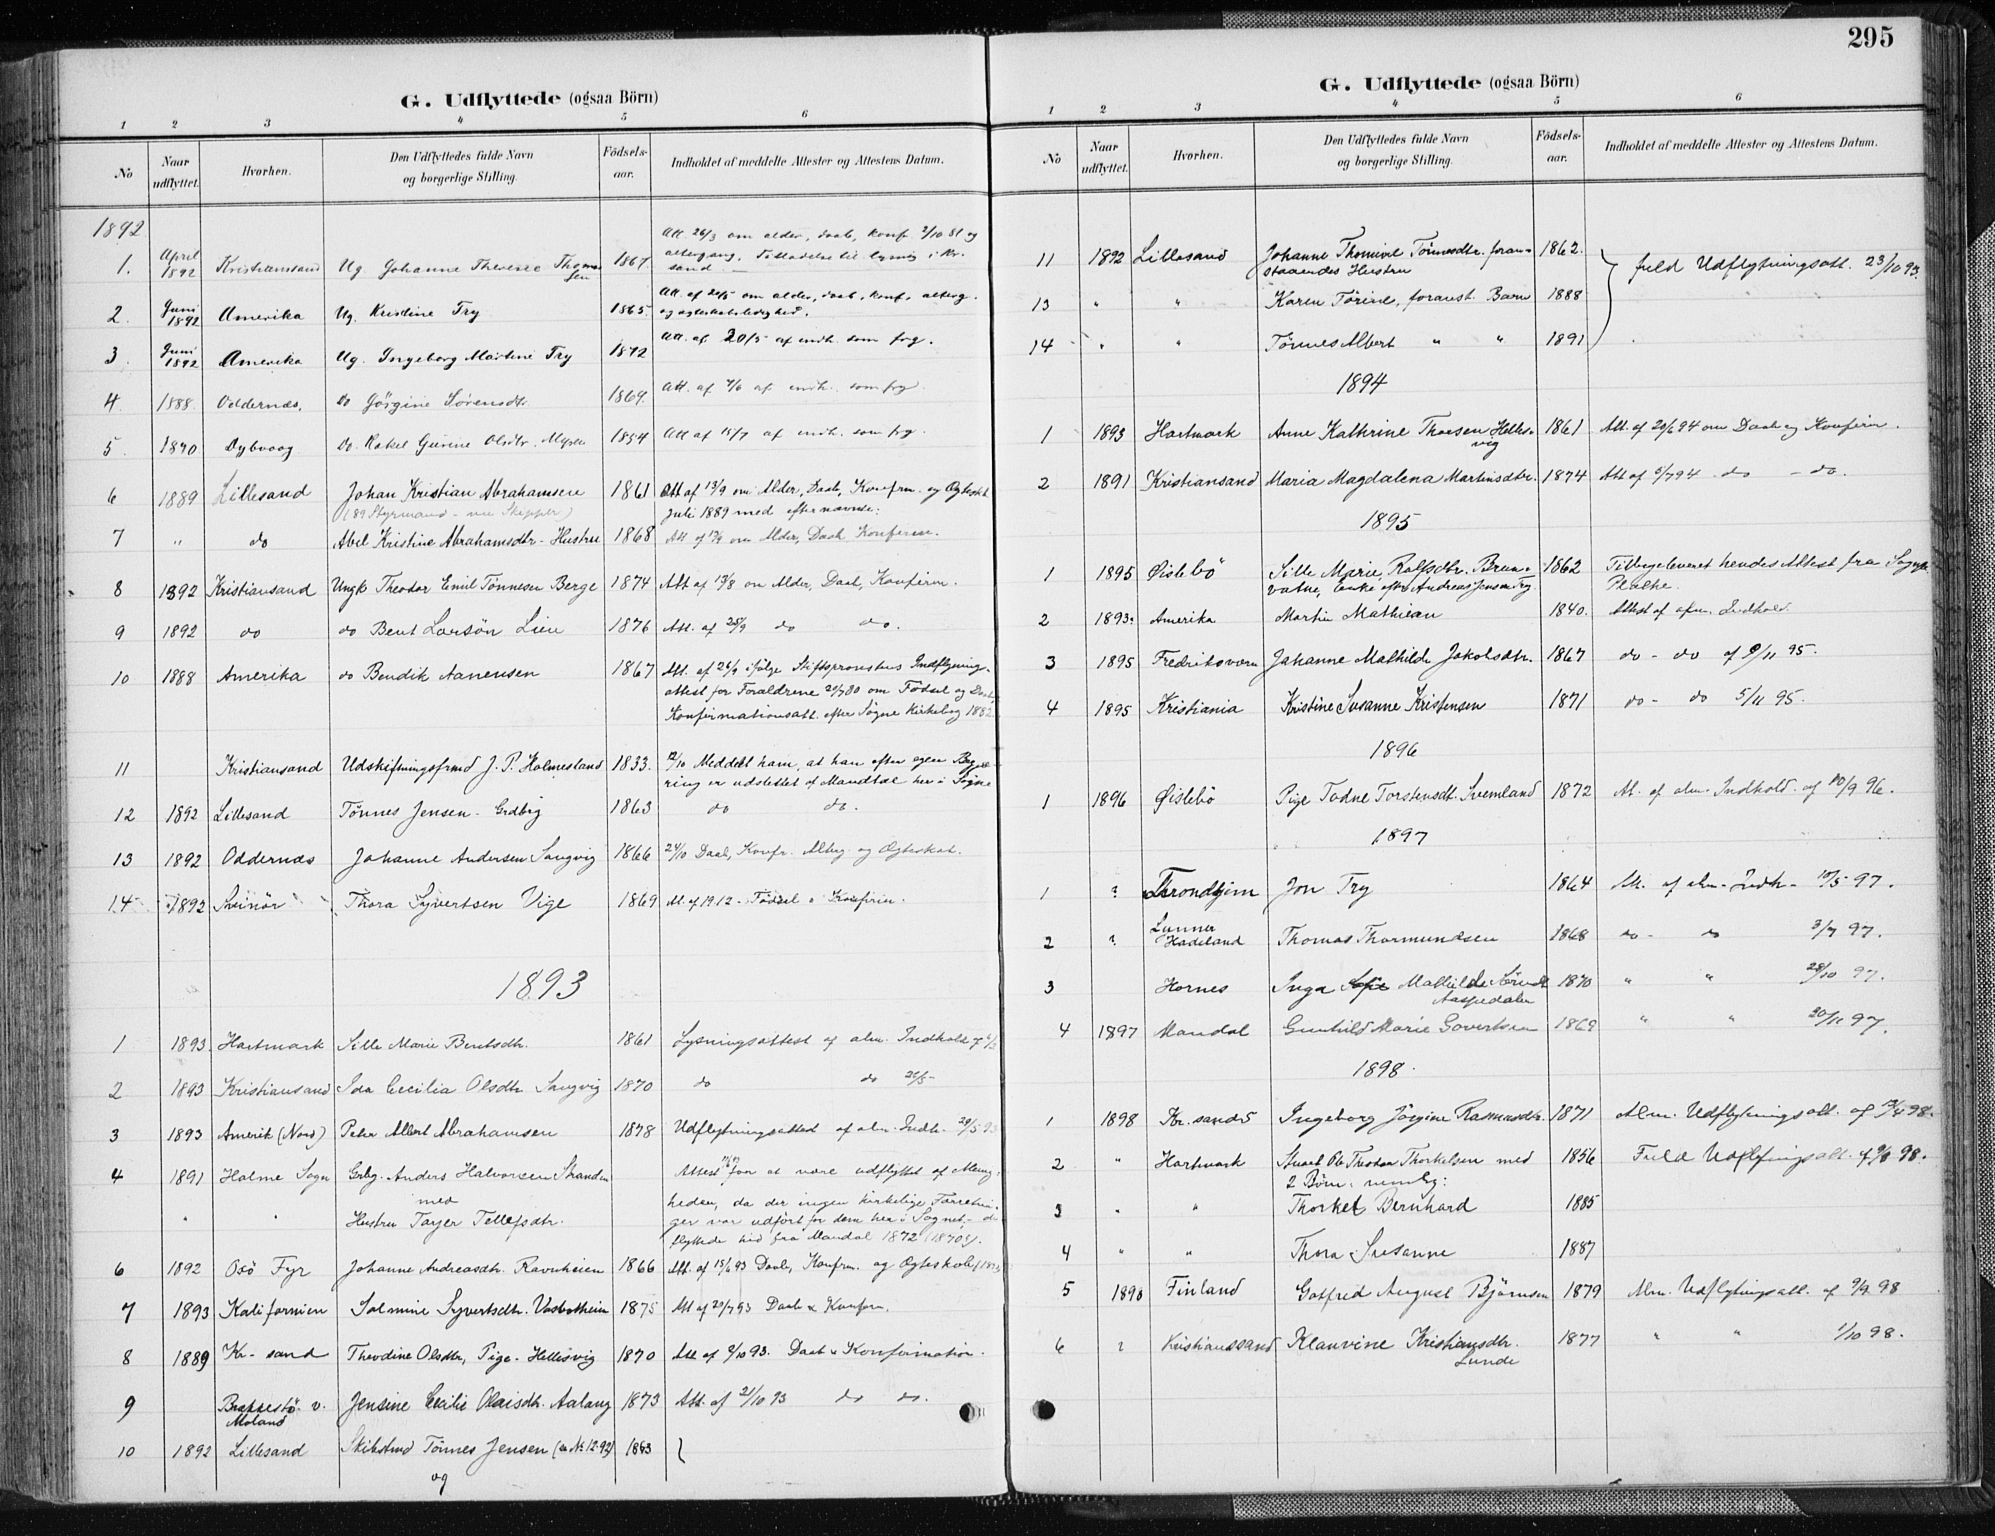 G. Udflyttede (ogsaa Börn)
1 2 3 4 5 6
No
Naar udflyttet.
Hvorhen.
Den Udflyttedes fulde Navn
og borgerlige Stilling.
Födsels-
aar.
Indholdet af meddelte Attester og Attestens Datum.
1892
Att. 26/3 om alder, daab, konf. 2/10 81 og
1. April 1892 Kristianssand Ug. Johanne Therese Thomassen 1867. altergang. Tilladelse til lysning i Kr.
sand.
2. Juni 1892 Amerika Ug. Kristine Try 1865. Att. af 20/5 om alder, daab, konf. alterg.
og ægteskabsledighed.
3. Juni 1892 Amerika Ug. Ingeborg Martine Try 1872 Att. af 20/5 af indh. som frg.
4. 1888. Oddernæs. Do Görgine Sörensdtr. 1869. Att. af 4/6 af indh. som frg.
5. 1870 Dybvaag Do. Rakel Gurine Olsdtr. Myren 1854 Att af 15/7 af indh. som frg.
6 1889 Lillesand Johan Kristian Abrahamsen 1861 Att af 13/9 om Alder, Daab, Konfrm. og Ægtesk.
(89 Styrmand - nu Skipper) Juli 1889 med efternævnte:
7 " do Abel Kristine Abrahamsdtr - Hustru 1868 Att af 13/9 om Alder, Daab Konfirm.
8 1892 Kristiansand Ungk Theodor Emil Tönnesen Berge 1874 Att af 13/8 om Alder, Daab, Konfirm.
9 1892 do do Bent Larsön Lien 1876 Att. af 28/9 do do.
10 1888 Amerika do Bendik Aanensen 1867 Att. af 26/9 ifölge Stiftsprovstens Indflytning-
attest for Forældrene 20/7 80 om Födsel og Daab,
Konfirmationsatt. efter Sögne Kirkebog 1882
11 Kristiansand Udskiftningsfrmd J. P. Holmesland 1833. 12/10 Meddelt ham, at han efter egen Begjæ-
ring er udslettet af Mandtal her i Sogne
12 1892 Lillesand Tönnes Jensen. Grdbrg 1863 do do.
13 1892 Oddernæs Johanne Andersen Langvig 1866 24/10 Daab, Konfr. Alterg. og Ægteskab.
14 1892 Svinör Thora Syvertsen Vige 1869 At. af 19 12 - Födsel & Konfirm.
1893
1 1893 Hartmark Sille Marie Bentsdtr. 1861 Lysningsattest af alm. Indhold
2 1893 Kristiansand Ida Cecilia Olsdtr Langvig 1870 do do 26/5-
3 1893 Amerik (Nord) Peter Albert Abrahamsen 1878 Udflytningsattest af alm. Indh. 29/5 93
4 1891 Holme Sogn Grbg. Anders Halvorsen Stranden Attest for at være udflyttet af Menig-
med heden, da der ingen kirkelige Forretnin-
" " Hustru Tarjer Tellefsdtr. ger var udfört for dem her i Sognet,- de
flyttede hid fra Mandal 1872 (1870?).
6 1892 Oxö Fyr Johanne Andreasdtr. Ravnheien 1866 Att. af 15/6 93 Daab, Konfrm. og Ægteskab
7 1893 Kalifornien Salmine Syvertsdtr. Vasbotheien 1875 Att af 20/7 93 Daab & Konfrm.
8 1889 Kr-sand Theodine Olsdtr, Pige. Hellesvig 1870 Att af 9/10 93. Daab & Konfirmation.
9 Brekkestö v. Moland Jensine Cecilie Olaisdtr. Aalang 1873 Att. af 21/10 93 do do.
10 1892 Lillesand Skibstmd Tönnes Jensen (se No 12-92) 1863 }
og
295
G. Udflyttede (ogsaa Börn)
1 2 3 4 5 6
No
Naar udflyttet.
Hvorhen.
Den Udflyttedes fulde Navn
og borgerlige Stilling.
Födsels-
aar.
Indholdet af meddelte Attester og Attestens Datum.
11 1892 Lillesand Johanne Thomine Tönnesdtr. foran- 1862.
staaendes Hustru } fuld Udflytningsatt. 23/10 93.
13 " " Karen Törine, foranst. Barn 1888
14 " " Tönnes Albert " " 1891
1894
1 1893 Hartmark Anne Kathrine Thorsen Helles- 1861 Att. af 20/6 94 om Daab og Konfirm.
vig
2 1891 Kristiansand Maria Magdalena Martinsdtr. 1874 Att af 5/7 94 do - do.
1895
1 1895 Öislebö Sille Marie Rolfsdtr. Brun- 1862 Tilbageleveret hendes Attest fra Sognepr.
vatne, Enke efter Andreas Jensen Try Blatke.
2 1893. Amerika Martin Mathisen 1840. Attest af alm. Indhold
3 1895 Fredriksværn Johanne Mathilde Jakobsdtr. 1867 do - do af 9/11 95.
4 1895 Kristiania Kristine Susanne Kristensen 1871 do - do 5/11 95.
1896
1 1896 Öislebö Pige Todne Torstensdt. Svemland 1872 At. af alm. Indhold af 10/9 96.
1897
1 ? Throndhjem Jon Try 1864 At. af alm. Indh - 10/5 97.
2 ? Lunner Hadeland Thomas Thormundsen 1868 do - do 3/7 97.
3 Hornes Inga Sofie Mathilde Sörensdt 1870 " " 28/10 97.
Aaspedalen
4 1897 Mandal Gunhild Marie Govertsen 1869 " " 20/11 97.
1898.
1 1898 Kr. sands Ingeborg Jörgine Rasmusdtr. 1871 Alm. Udflytningsatt. af 13/4 98.
2 " Hartmark Ole Theodor Thorkelsen med 1856 Fuld Udflytningsatt. af 98.
2 Börn: nemlig:
3 " " Thorkel Bernhard 1885
4 " " Thora Susanne 1887
5 1890 Finland Gotfred August Björnsen 1879 Alm. Udflytningsatt. af 9/9 98
6 ? Kristianssand Klauvine Kristiansdtr. 1877 " " 1/10 98.
Lunde